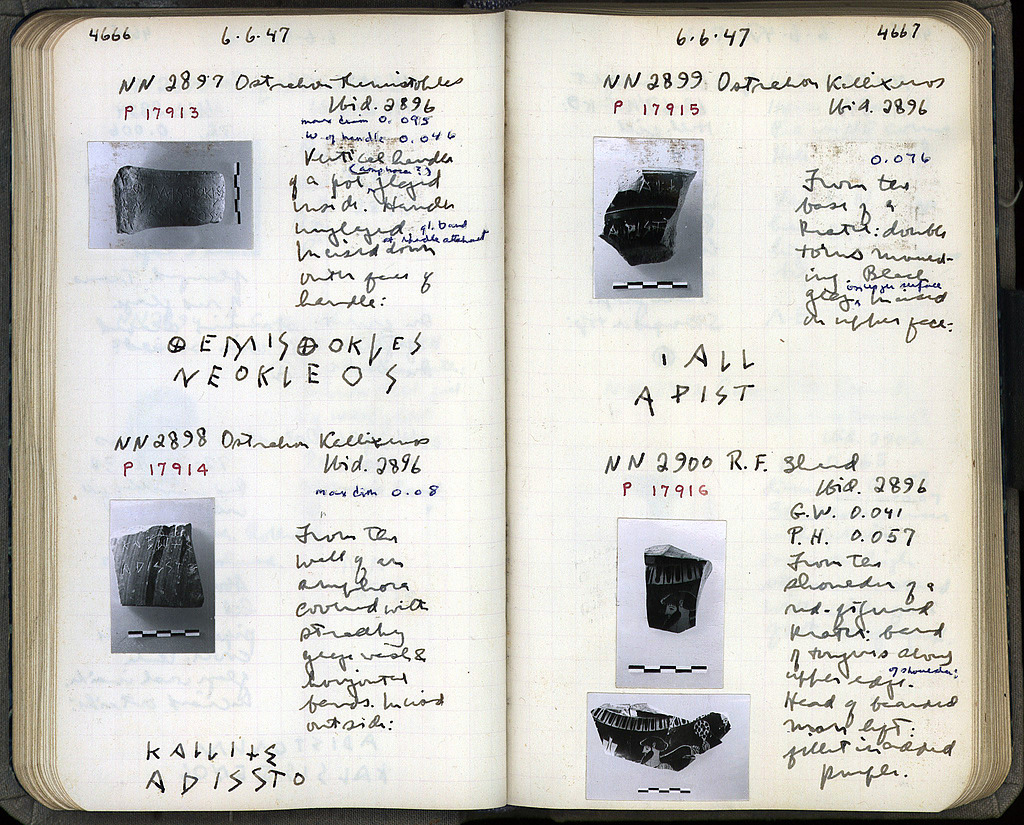 4666
6·6·47
NN 2897 Ostrakon Themistokles
P 17913
Ibid. 2896
max dim 0.095
W of handle 0.046
Vertical handle
(amphora?)
of a pot, glazed
inside. Handle
unglazed gl. band
at handle attachmt
Incised down
outer face of
handle:
⊕EMIS⊕OKLES
NEOKLEOS
NN 2898 Ostrakon Kallixenos
P 17914
Ibid. 2896
max dim 0.08
From the
wall of an
amphora
covered with
streaky
glaze wash &
horizontal
bands. Incised
outside:
KALLI+Ε
ADISSTO
6·6·47
4667
NN 2899 Ostrakon Kallixenos
P 17915
Ibid. 2896
0.076
From the
base of a
krater: double
torus mould-
ing. Black
on upper surface
glaze, Incised
on upper face:
IALL
APIST
NN 2900 R.F. Sherd
P 17916
Ibid. 2896
G.W. 0.041
P.H. 0.057
From the
shoulder of a
red-figured
krater: band
of tongues along
upper edge. of shoulder:
Head of bearded
man left:
fillet in added
purple.